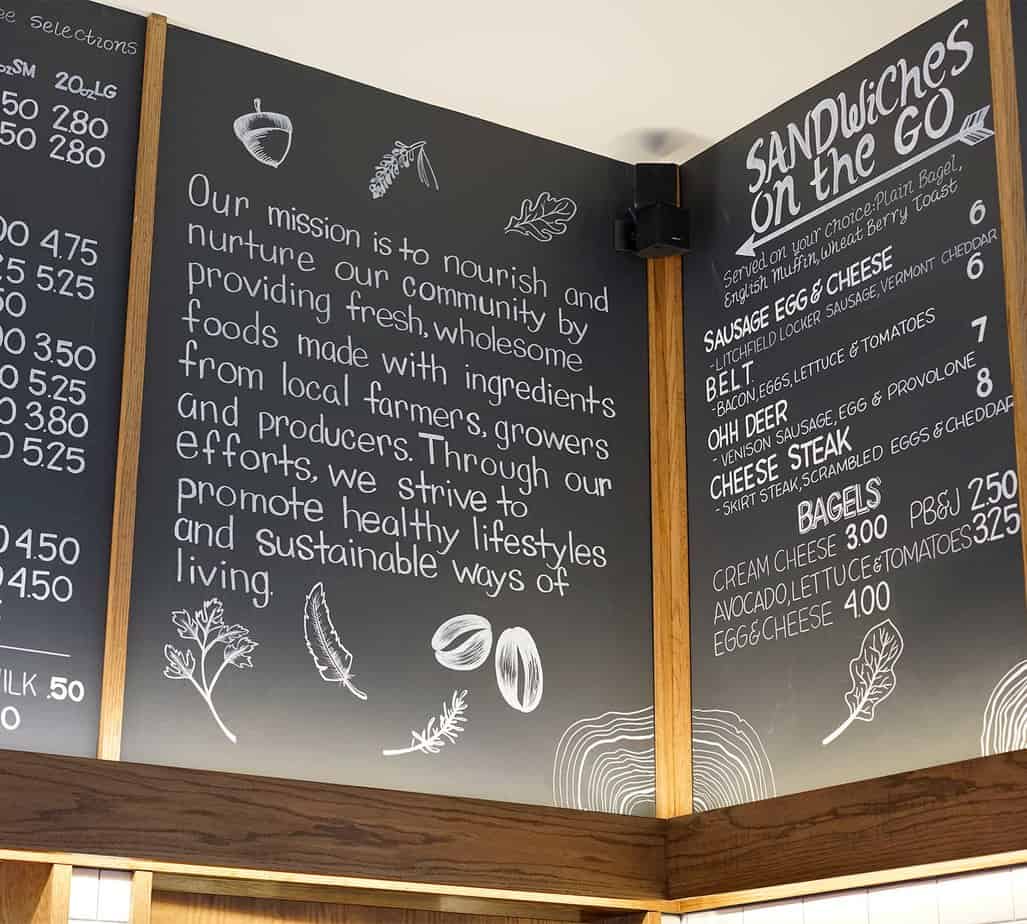 Selections
SM 20ozLG
50 2.80
50 2.80
00 4.75
5.25
50
00 3.50
0 5.25
0 3.80
0 5.25
0 4.50
0 4.50
MILK .50
0
Our mission is to nourish and
nurture our community by
providing fresh, wholesome
foods made with ingredients
from local farmers, growers
and producers. Through our
efforts, we strive to
promote healthy lifestyles
and sustainable ways of
living.
SANDWiCHES
on the GO
Served on your choice: Plain Bagel,
English Muffin, Wheat Berry Toast
SAUSAGE EGG & CHEESE 6
- LITCHFIELD LOCKER SAUSAGE, VERMONT CHEDDAR
BELT 6
- BACON, EGGS, LETTUCE & TOMATOES
OHH DEER 7
- VENISON SAUSAGE, EGG & PROVOLONE
CHEESE STEAK 8
- SKIRT STEAK, SCRAMBLED EGGS & CHEDDAR
BAGELS
CREAM CHEESE 3.00 PB&J 2.50
AVOCADO, LETTUCE & TOMATOES 3.25
EGG & CHEESE 4.00